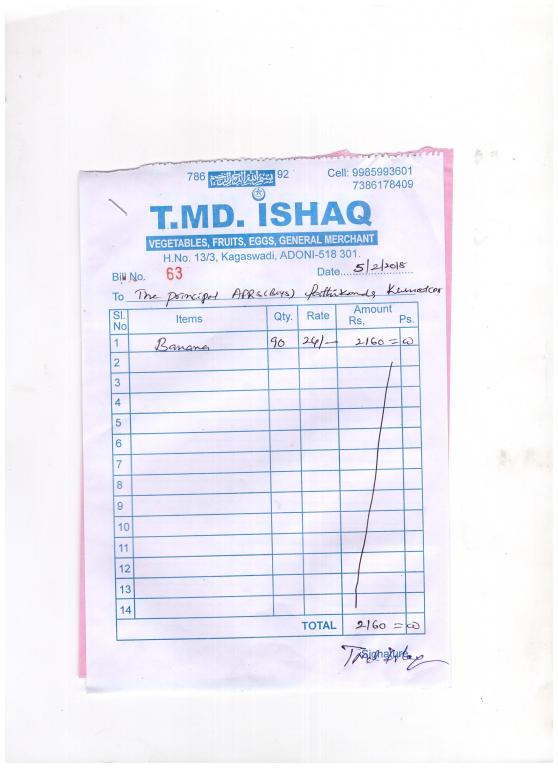 786 92
Cell: 9985993601
7386178409
T.MD. ISHAQ
VEGETABLES, FRUITS, EGGS, GENERAL MERCHANT
H.No. 13/3, Kagaswadi, ADONI-518 301.
Bill No. 63 Date....5/2/2018
To The principal APRS(Boys)
Sl. No Items Qty. Rate Amount Rs, Ps.
1 Banana 90 24/- 2160 = 00
2
3
4
5
6
7
8
9
10
11
12
13
14
TOTAL 2160 = 00
Signature